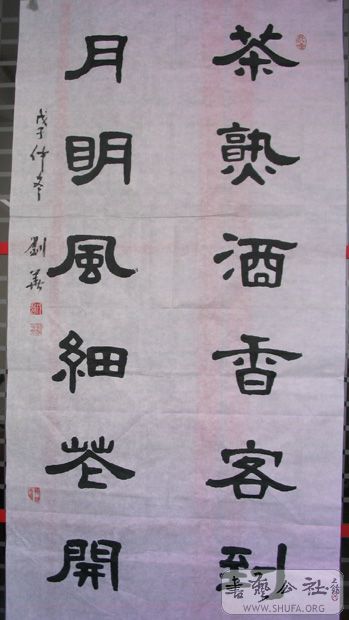 茶熟酒香客到
月明風細花開
戊子仲冬 劉
書藝公社
WWW.SHUFA.ORG